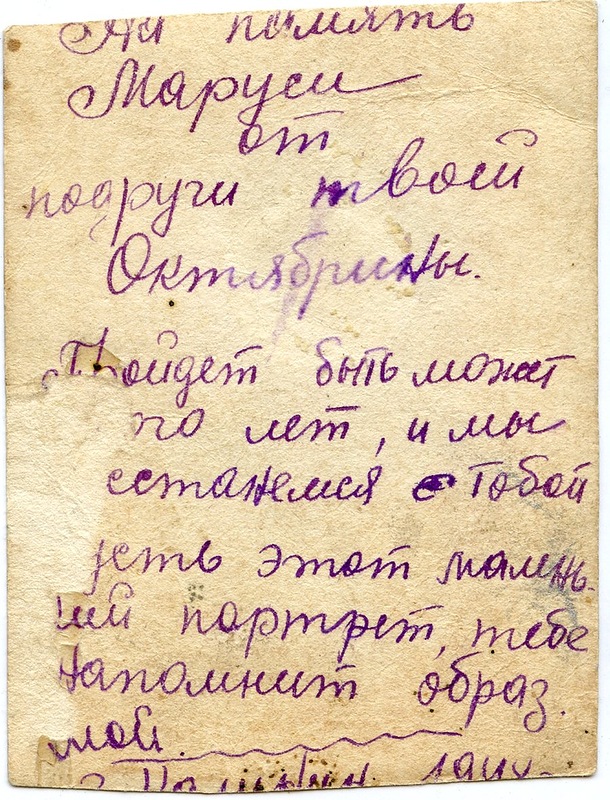 На память
Маруси
от
подруги твоей
Октябрины.
Пройдет быть может
ого лет, и мы
сстанемся с тобой
усть этот малень-
кий портрет, тебе
напомнит образ.
мой.
г.